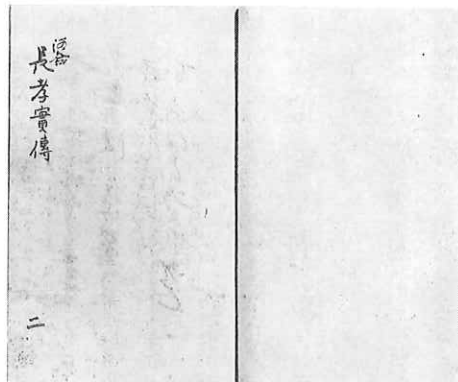 長孝實傳
二